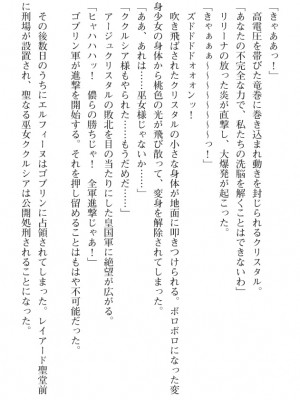 「きゃああっ！」
　高電圧を帯びた竜巻に巻き込まれ動きを封じられるクリスタル。
「あなたの不完全な力で、私たちの洗脳を解くことはできないわ」
　リリーナの放った炎が直撃し、大爆発が起こった。
「きゃぁぁぁ～～～～～～～～っ！」
　ズドドドドォォオンッ！
　吹き飛ばされたクリスタルの小さな身体が地面に叩きつけられる。ボロボロになった変
身少女の身体から桃色の光が飛び散って、変身を解除されてしまった。
「ああ、あれは……巫女様じゃないか……」
「ククルシア様もやられた……もうだめだ……」
　アージュクリスタルの敗北を目の当たりにした皇国軍に絶望が広がる。
「ヒャハハハッ！　儂らの勝ちじゃ！　全軍進撃じゃあ！」
　ゴブリン軍が進撃を開始する。それを押し留めることはもはや不可能だった。

　その後数日のうちにエルフィーヌはゴブリンに占領されてしまった。レイアード聖堂前
に刑場が設置され、聖なる巫女ククルシアは公開処刑されることになった。